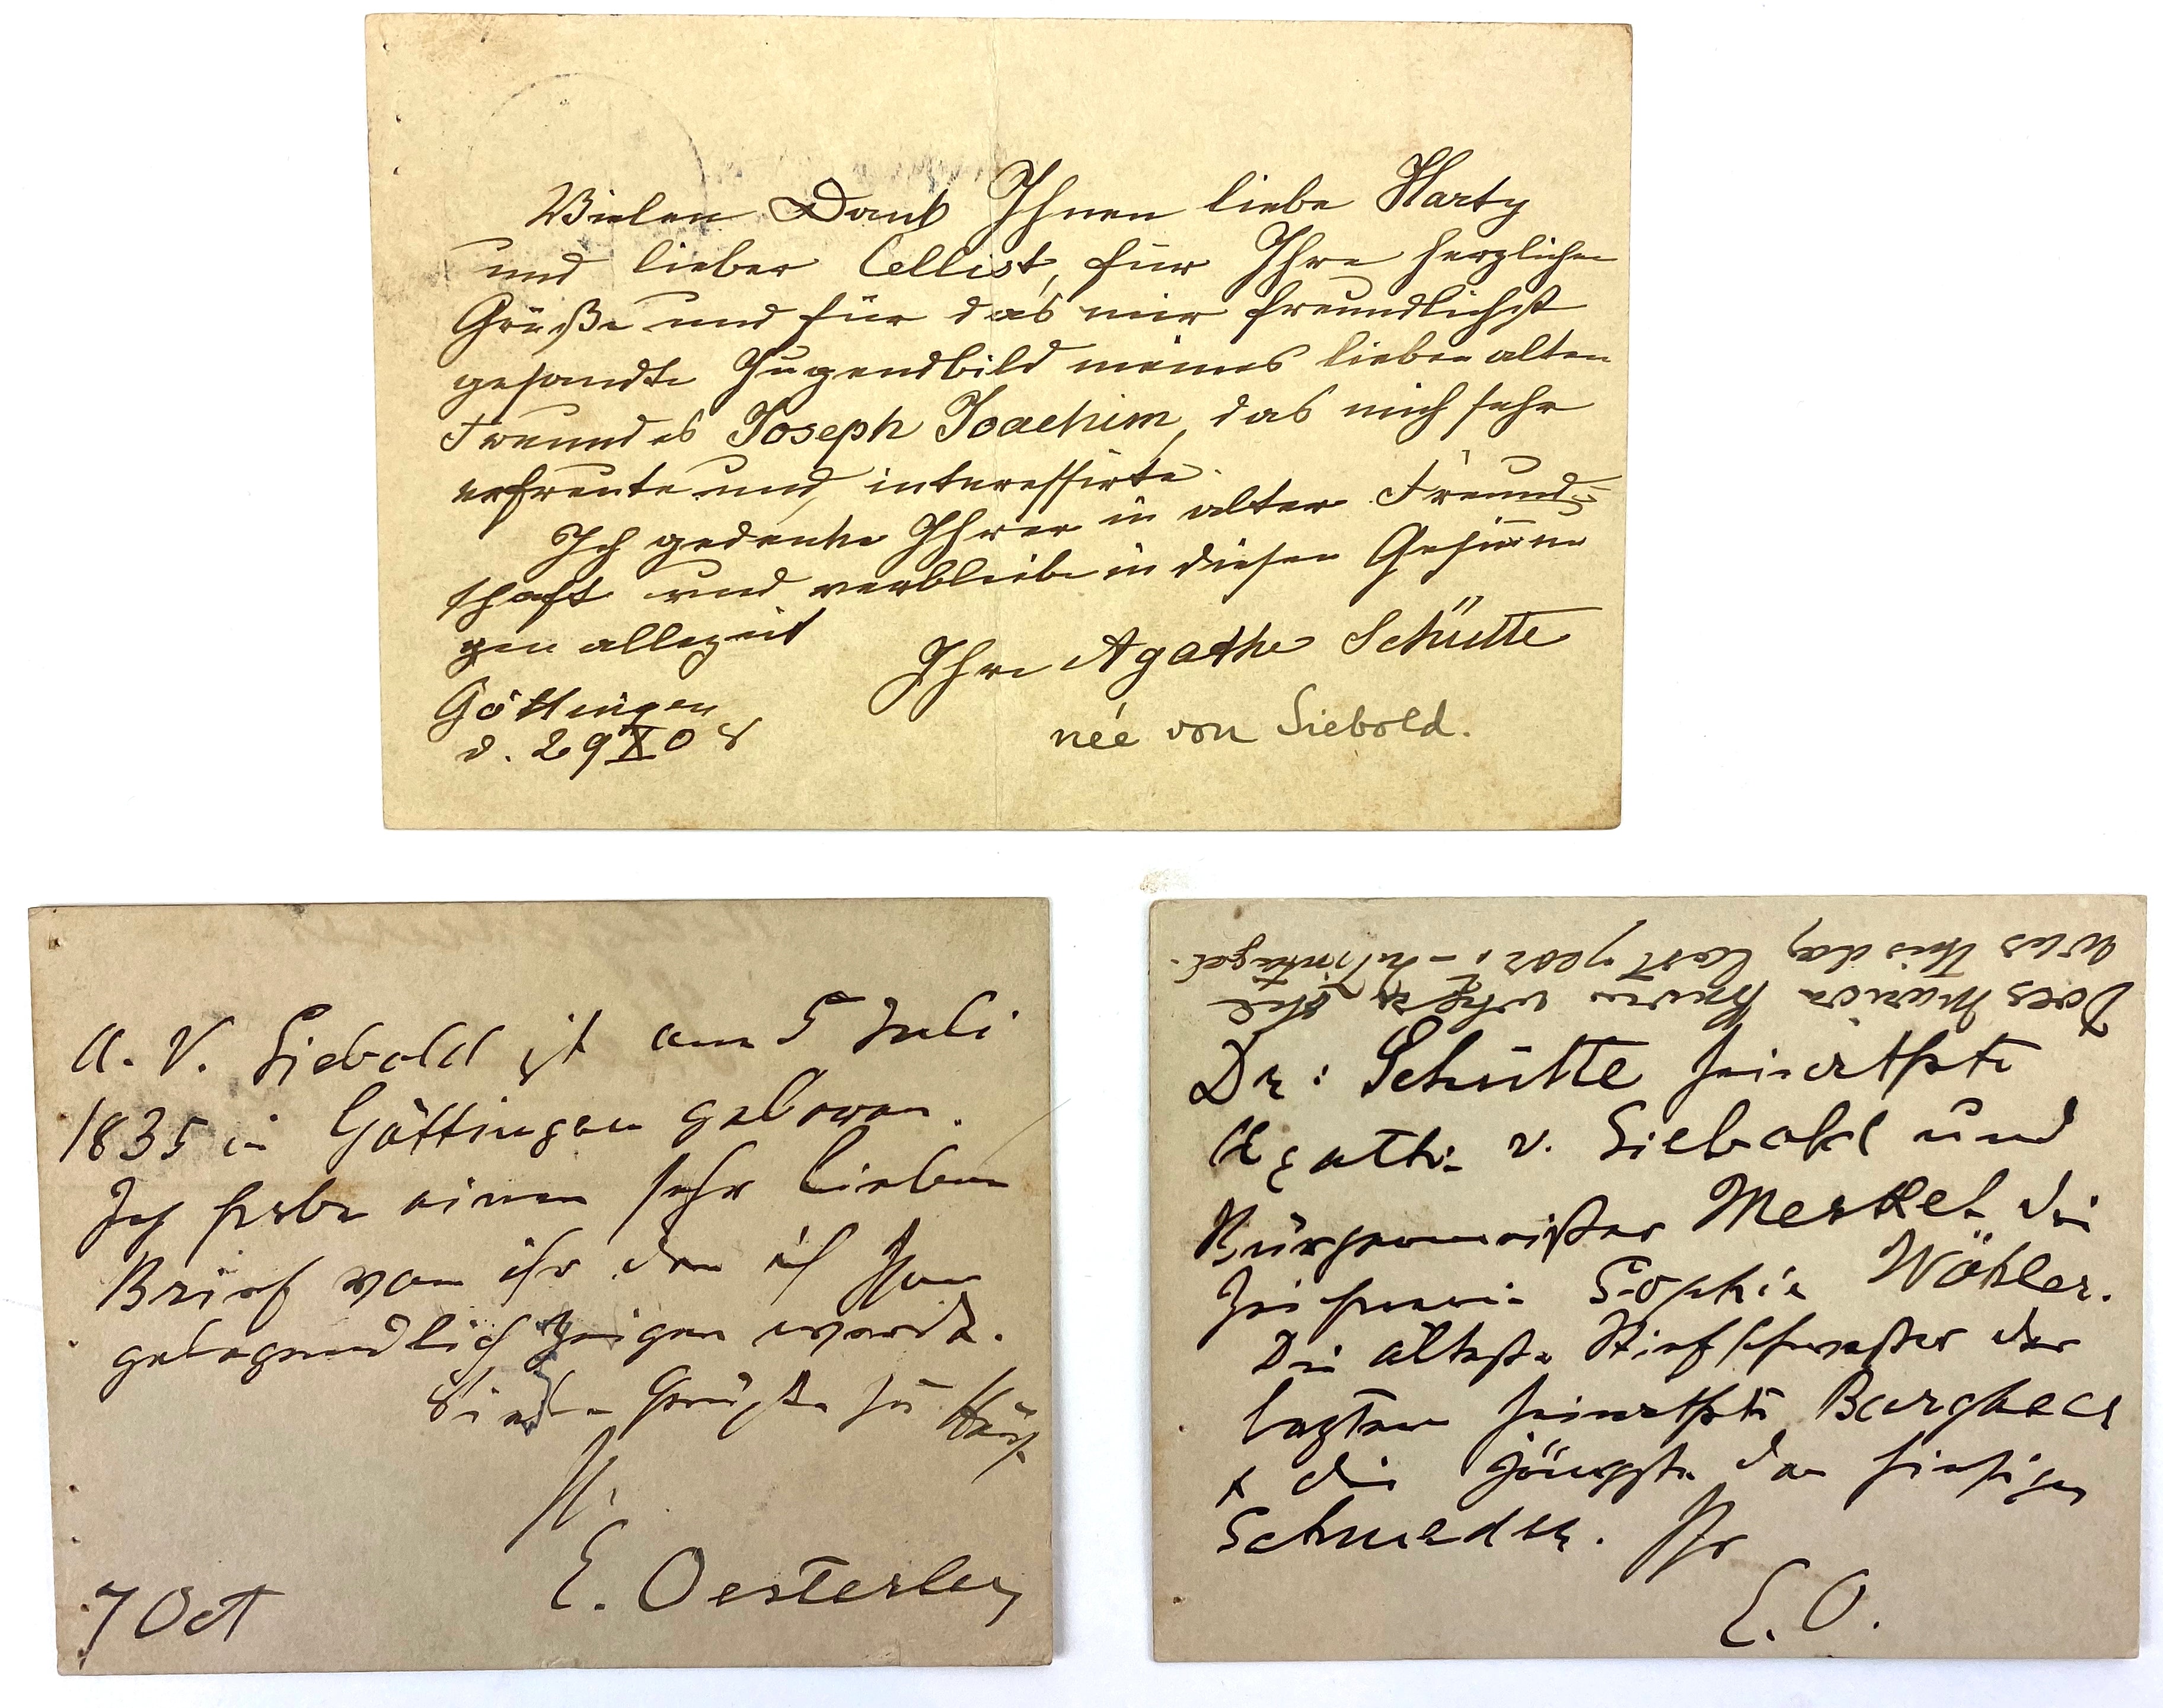 Vielen Dank Ihnen liebe Marty
und lieber Cellist, für Ihre herzlichen
Grüße und für das mir freundlichst
gesandte Jugendbild meines lieben alten
Freundes Joseph Joachim, das mich sehr
erfreute und interessirte.
Ich gedenke Ihrer in alter Freund-
schaft und verbleibe in diesen Gesinnun
gen allezeit
Ihre Agathe Schütte
née von Siebold.
Göttingen
d. 29 X 08
A. V. Siebold ist am 5 Juli
1835 in Göttingen geboren.
Ich habe einen sehr lieben
Brief von ihr den ich Ihnen
gelegendlich zeigen werde.
Grüße zu Haus
Ihr
E. Oesterley
7 Oct
Does Marion know where she
was this day last year, – in Tintagel.
Dr: Schütte heirathete
Agathe v. Siebold und
Bürgermeister Merkel die
Sophie Wöhler.
Die älteste Stiefschwester der
letzten heirathete Burghard
+ die jüngste den hiesigen
Ihr
E. O.